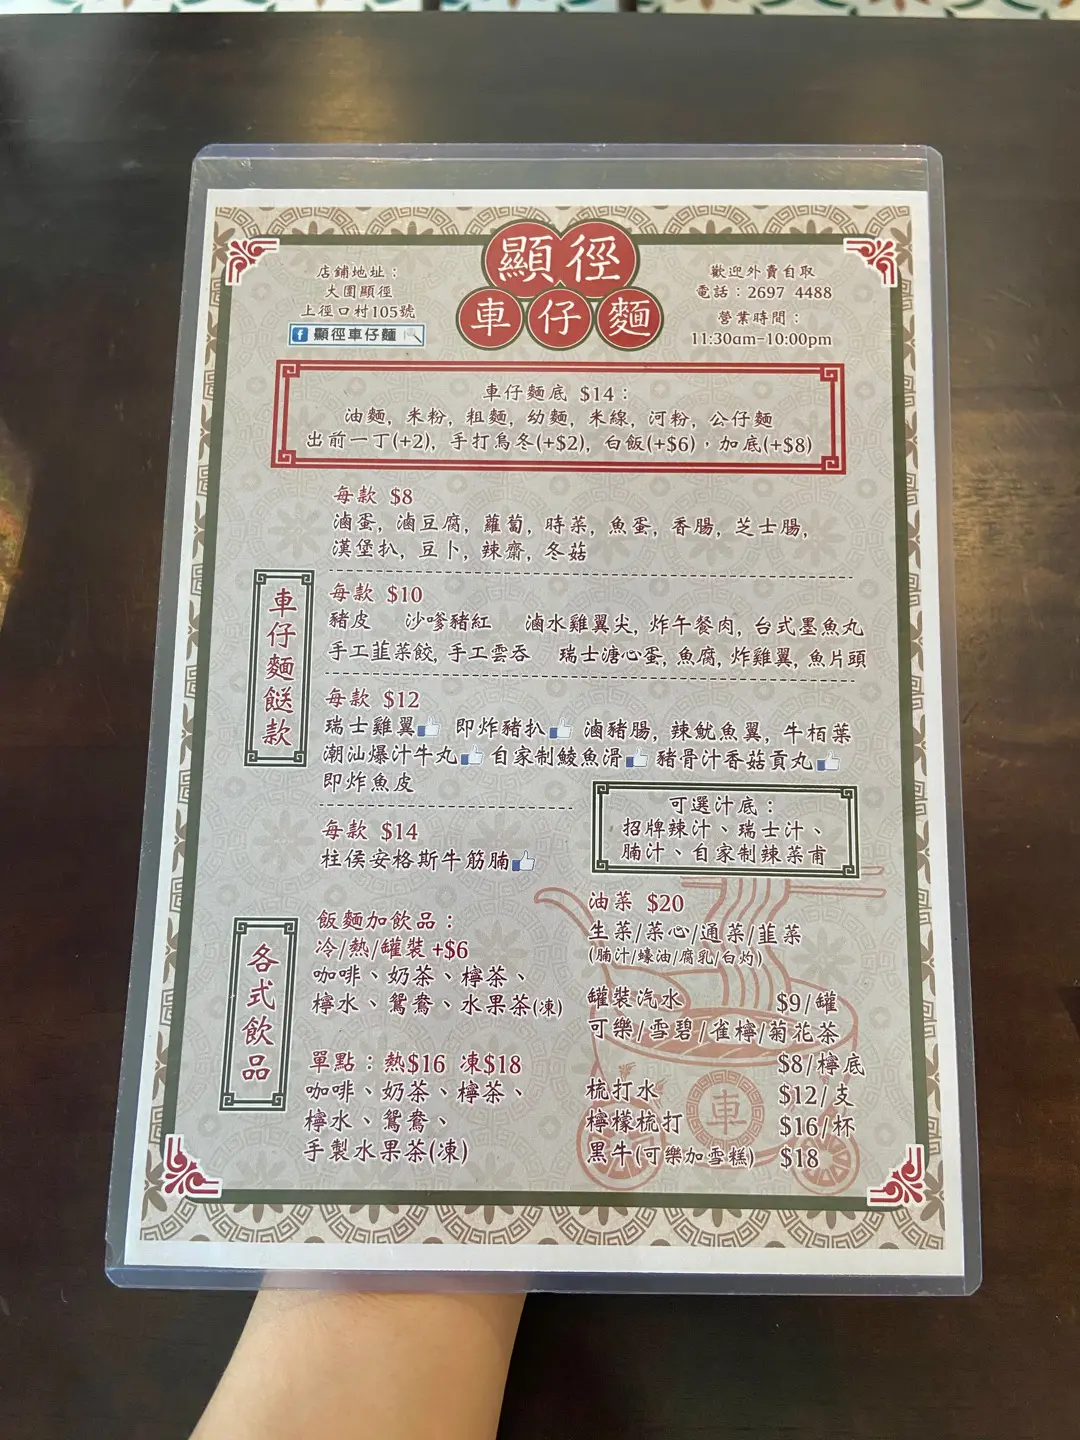 顯徑
車仔麵
店鋪地址：
大圍顯徑
上徑口村105號
顯徑車仔麵
歡迎外賣自取
電話：2697 4488
營業時間：
11:30am-10:00pm
車仔麵底 $14：
油麵, 米粉, 粗麵, 幼麵, 米線, 河粉, 公仔麵
出前一丁(+2), 手打烏冬(+$2), 白飯(+$6)，加底(+$8)
車仔麵餸款
每款 $8
滷蛋, 滷豆腐, 蘿蔔, 時菜, 魚蛋, 香腸, 芝士腸,
漢堡扒, 豆卜, 辣齋, 冬菇
每款 $10
豬皮 沙嗲豬紅 滷水雞翼尖, 炸午餐肉, 台式墨魚丸
手工韮菜餃, 手工雲吞 瑞士溏心蛋, 魚腐, 炸雞翼, 魚片頭
每款 $12
瑞士雞翼 即炸豬扒 滷豬腸, 辣魷魚翼, 牛栢葉
潮汕爆汁牛丸 自家制鯪魚滑 豬骨汁香菇貢丸
即炸魚皮
每款 $14
柱侯安格斯牛筋腩
可選汁底：
招牌辣汁、瑞士汁、
腩汁、自家制辣菜甫
各式飲品
飯麵加飲品：
冷/熱/罐裝 +$6
咖啡、奶茶、檸茶、
檸水、鴛鴦、水果茶(凍)
單點：熱$16 凍$18
咖啡、奶茶、檸茶、
檸水、鴛鴦、
手製水果茶(凍)
油菜 $20
生菜/菜心/通菜/韮菜
(腩汁/蠔油/腐乳/白灼)
罐裝汽水 $9/罐
可樂/雪碧/雀檸/菊花茶
$8/檸底
梳打水 $12/支
檸檬梳打 $16/杯
黑牛(可樂加雪糕) $18
車